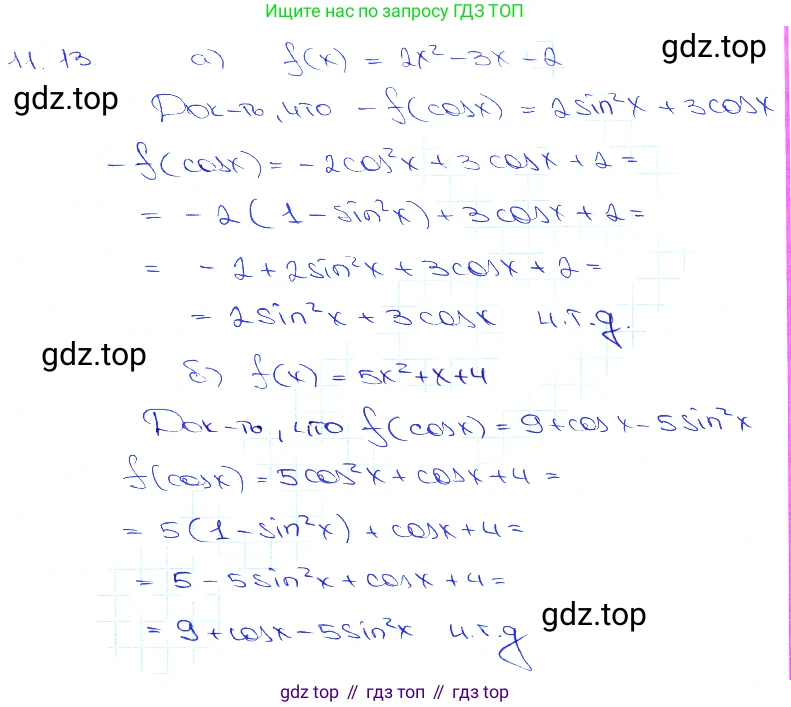 Ищите нас по запросу ГДЗ ТОП
11.13 а) f(x) = 2x² - 3x - 2
gdz.top
gdz.top
Док-ть, что - f(cosx) = 2sin²x + 3cosx
- f(cosx) = - 2cos²x + 3cosx + 2 =
= - 2(1 - sin²x) + 3cosx + 2 =
= - 2 + 2sin²x + 3cosx + 2 =
= 2sin²x + 3cosx ч.т.д.
gdz.top
б) f(x) = 5x² + x + 4
Док-ть, что f(cosx) = 9 + cosx - 5sin²x
f(cosx) = 5cos²x + cosx + 4 =
= 5(1 - sin²x) + cosx + 4 =
= 5 - 5sin²x + cosx + 4 =
gdz.top
= 9 + cosx - 5sin²x ч.т.д
gdz top // гдз топ // gdz top